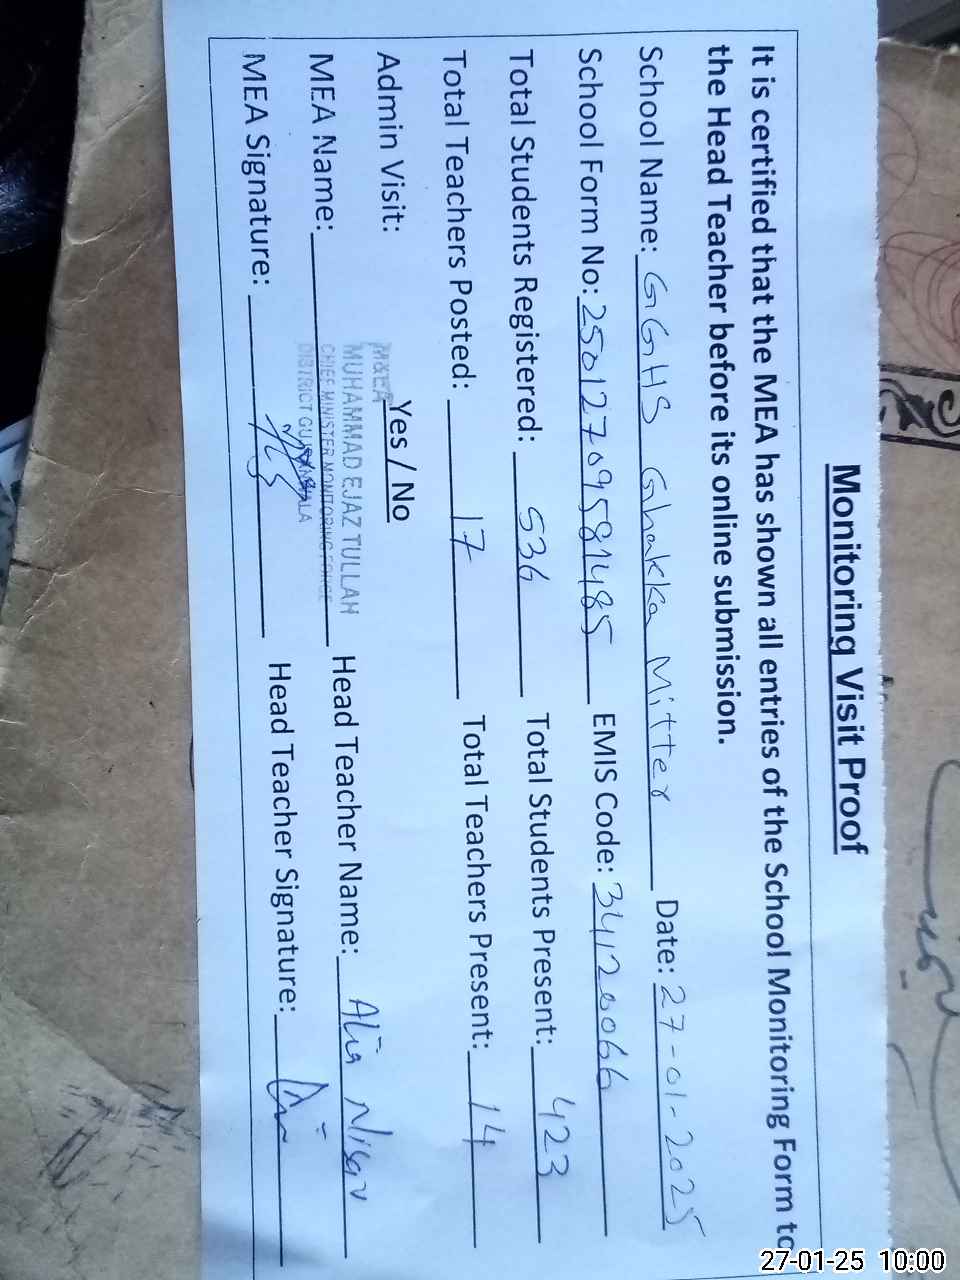 Monitoring Visit Proof
It is certified that the MEA has shown all entries of the School Monitoring Form to
the Head Teacher before its online submission.
School Name: GGHS Ghakka Mitter Date: 27-01-2025
School Form No: 25012709581485 EMIS Code: 34120066
Total Students Registered: 536 Total Students Present: 423
Total Teachers Posted: 17 Total Teachers Present: 14
Admin Visit: Yes / No
M&EA
MUHAMMAD EJAZ TULLAH
CHIEF MINISTER MONITORING FORCE
DISTRICT GUJRANWALA
MEA Name: Head Teacher Name: Alia Nisar
MEA Signature: Head Teacher Signature:
27-01-25 10:00